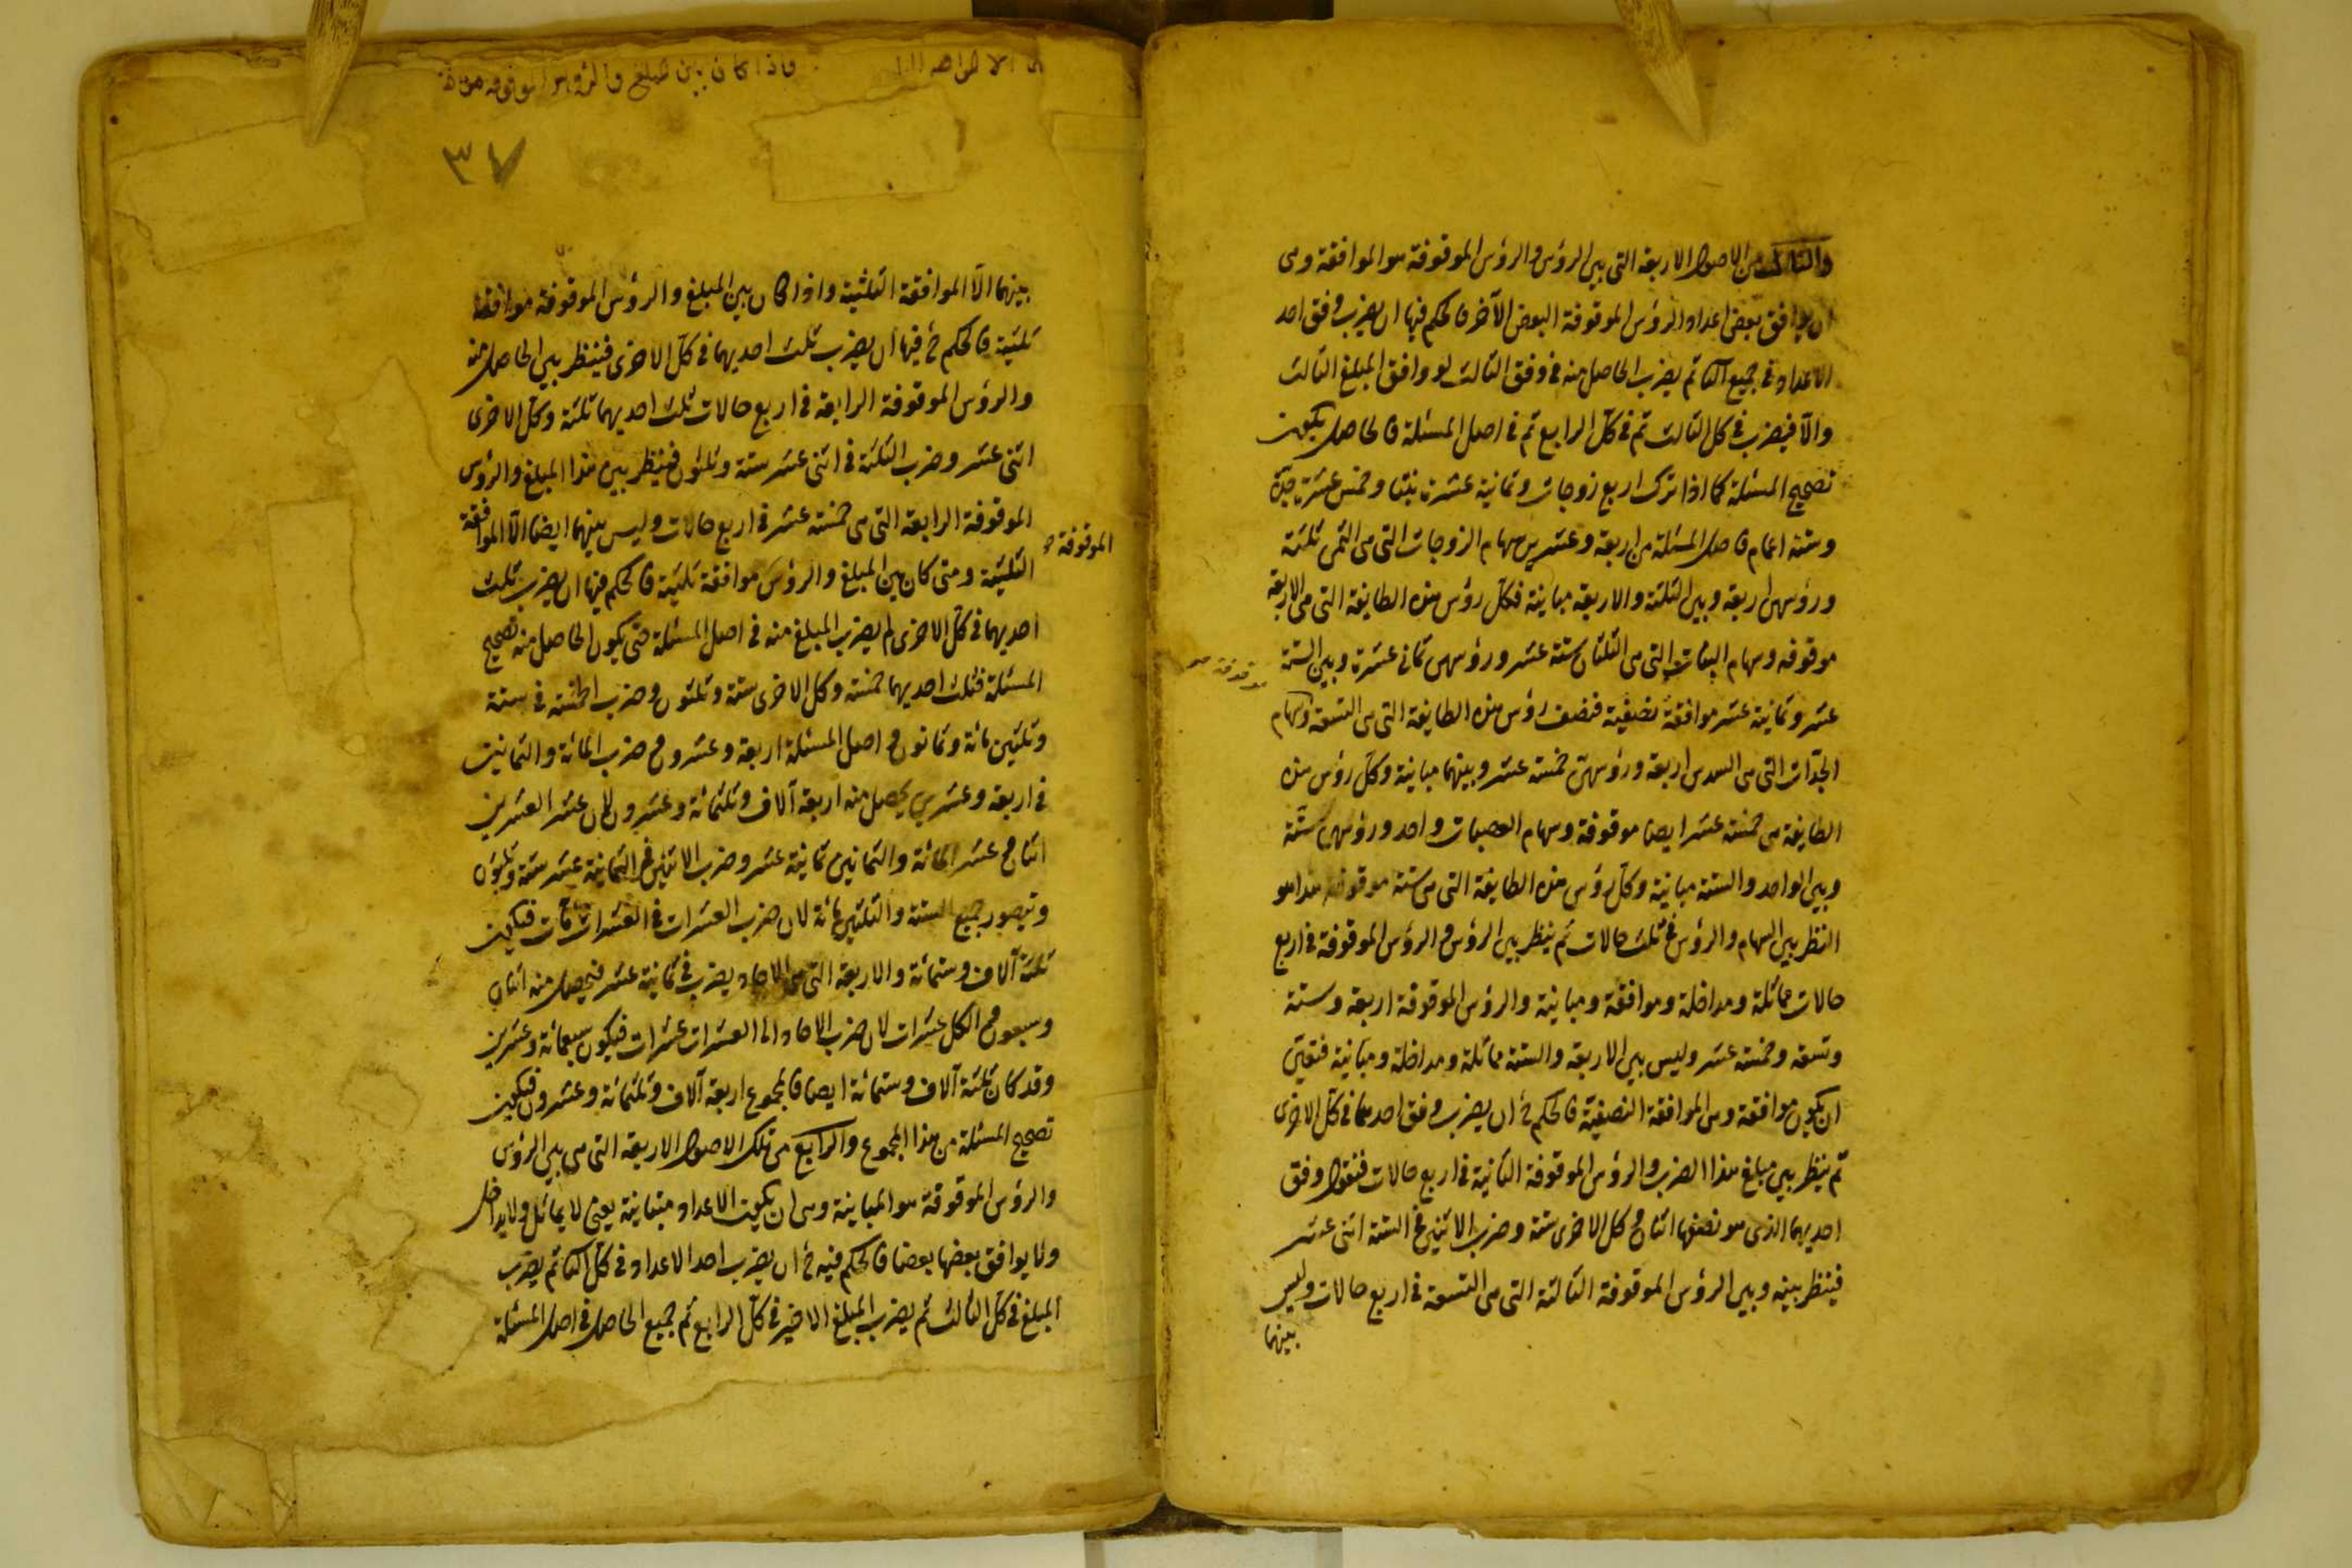 والثالث من الاصول الاربعة التى بين الرؤس والرؤس الموقوفة هو الموافقة وهى
ان يوافق بعض اعداد الرؤس الموقوفة البعض الآخر فالحكم فيها ان يضرب وفق احد
الاعداد فى جميع الثانى ثم يضرب الحاصل منه فى وفق الثالث لو وافق المبلغ الثالث
والا فيضرب فى كل الثالث ثم فى كل الرابع ثم فى اصل المسئلة فالحاصل يكون
تصحيح المسئلة كما اذا ترك اربع زوجات وثمانية عشرة بنتا وخمس عشرة جدة
وستة اعمام فاصل المسئلة من اربعة وعشرين سهام الزوجات التى هى الثمن ثلثة
ورؤسهن اربعة وبين الثلثة والاربعة مباينة فكل رؤس هذه الطايفة التى هى الاربعة
موقوفه وسهام البنات التى هى الثلثان ستة عشر ورؤسهن ثمانى عشرة وبين الستة
موقوفة صح
عشر وثمانية عشر موافقة نصفية فنصف رؤس هذه الطايفة التى هى التسعة وسهام
الجدات التى هى السدس اربعة ورؤسهن خمسة عشر وبينهما مباينة وكل رؤس هذه
الطايفة هى خمسة عشر ايضا موقوفة وسهام العصبات واحد ورؤسهن ستة
وبين الواحد والستة مباينة وكل رؤس هذه الطايفة التى هى ستة موقوفة هذا هو
النظر بين السهام والرؤس فى ثلث حالات ثم ينظر بين الرؤس والرؤس الموقوفة فى اربع
حالات مماثلة ومداخلة وموافقة ومباينة والرؤس الموقوفة اربعة وستة
وتسعة وخمسة عشر وليس بين الاربعة والستة مماثلة ومداخلة ومباينة فتعين
ان يكون موافقة وهى الموافقة النصفية فالحكم ح ان يضرب وفق احدهما فى كل الاخرى
ثم ينظر بين مبلغ هذا الضرب والرؤس الموقوفة الثانية فى اربع حالات فنقول وفق
احديهما الذى هو نصفها اثنان وكل الاخرى ستة وضرب الاثنين فى الستة اثنى عشر
فينظر بينه وبين الرؤس الموقوفة الثالثة التى هى التسعة فى اربع حالات وليس
بينهما
واذا كان بين مبلغ والرؤس الموقوفه موافقة
٣٧
بينهما الا الموافقة الثلثية واذا كان بين المبلغ والرؤس الموقوفة موافقة
ثلثية فالحكم ح فيها ان يضرب ثلث احديهما فى كل الاخرى فينظر بين الحاصل منه
والرؤس الموقوفة الرابعة فى اربع حالات ثلث احديهما ثلثة وكل الاخرى
اثنى عشر وضرب الثلثة فى اثنى عشر ستة وثلثون فينظر بين هذا المبلغ والرؤس
الموقوفة الرابعة التى هى خمسة عشر فى اربع حالات وليس بينهما ايضا الا الموافقة
الموقوفة صح
الثلثية ومتى كان بين المبلغ والرؤس موافقة ثلثية فالحكم فيها ان يضرب ثلث
احديهما فى كل الاخرى ثم يضرب المبلغ منه فى اصل المسئلة حتى يكون الحاصل منه تصحيح
المسئلة فثلث احديهما خمسة وكل الاخرى ستة وثلثون وضرب الخمسة فى ستة
وثلثين مائة وثمانون واصل المسئلة اربعة وعشرون وضرب المائة والثمانين
فى اربعة وعشرين يحصل منه اربعة آلاف وثلثمائة وعشرون لان عشر العشرين
اثنان وعشر المائة والثمانين ثمانية عشر وضرب الاثنين فى الثمانية عشر ستة وثلثون
وتيصور جميع الستة والثلثين مائة لان ضرب العشرات فى العشرات مآت فيكون
ثلثة آلاف وستمائة والاربعة التى هى الاحاد يضرب فى ثمانية عشر فيحصل منه اثنان
وسبعون والكل عشرات لان ضرب الاحاد الى العشرات عشرات فيكون سبعمائة وعشرين
وقد كان ثلثة آلاف وستمائة ايضا فالمجموع اربعة آلاف وثلثمائة وعشرون فيكون
تصحيح المسئلة من هذا المجموع والرابع من تلك الاصول الاربعة التى هى بين الرؤس
والرؤس الموقوفة هو المباينة وهى ان يكون الاعداد متباينة يعنى لا يماثل ولا يداخل
ولا يوافق بعضها بعضا فالحكم فيه ح ان يضرب احد الاعداد فى كل الثانى ثم يضرب
المبلغ فى كل الثالث ثم يضرب المبلغ الاخير فى كل الرابع ثم جميع الحاصل فى اصل المسئلة